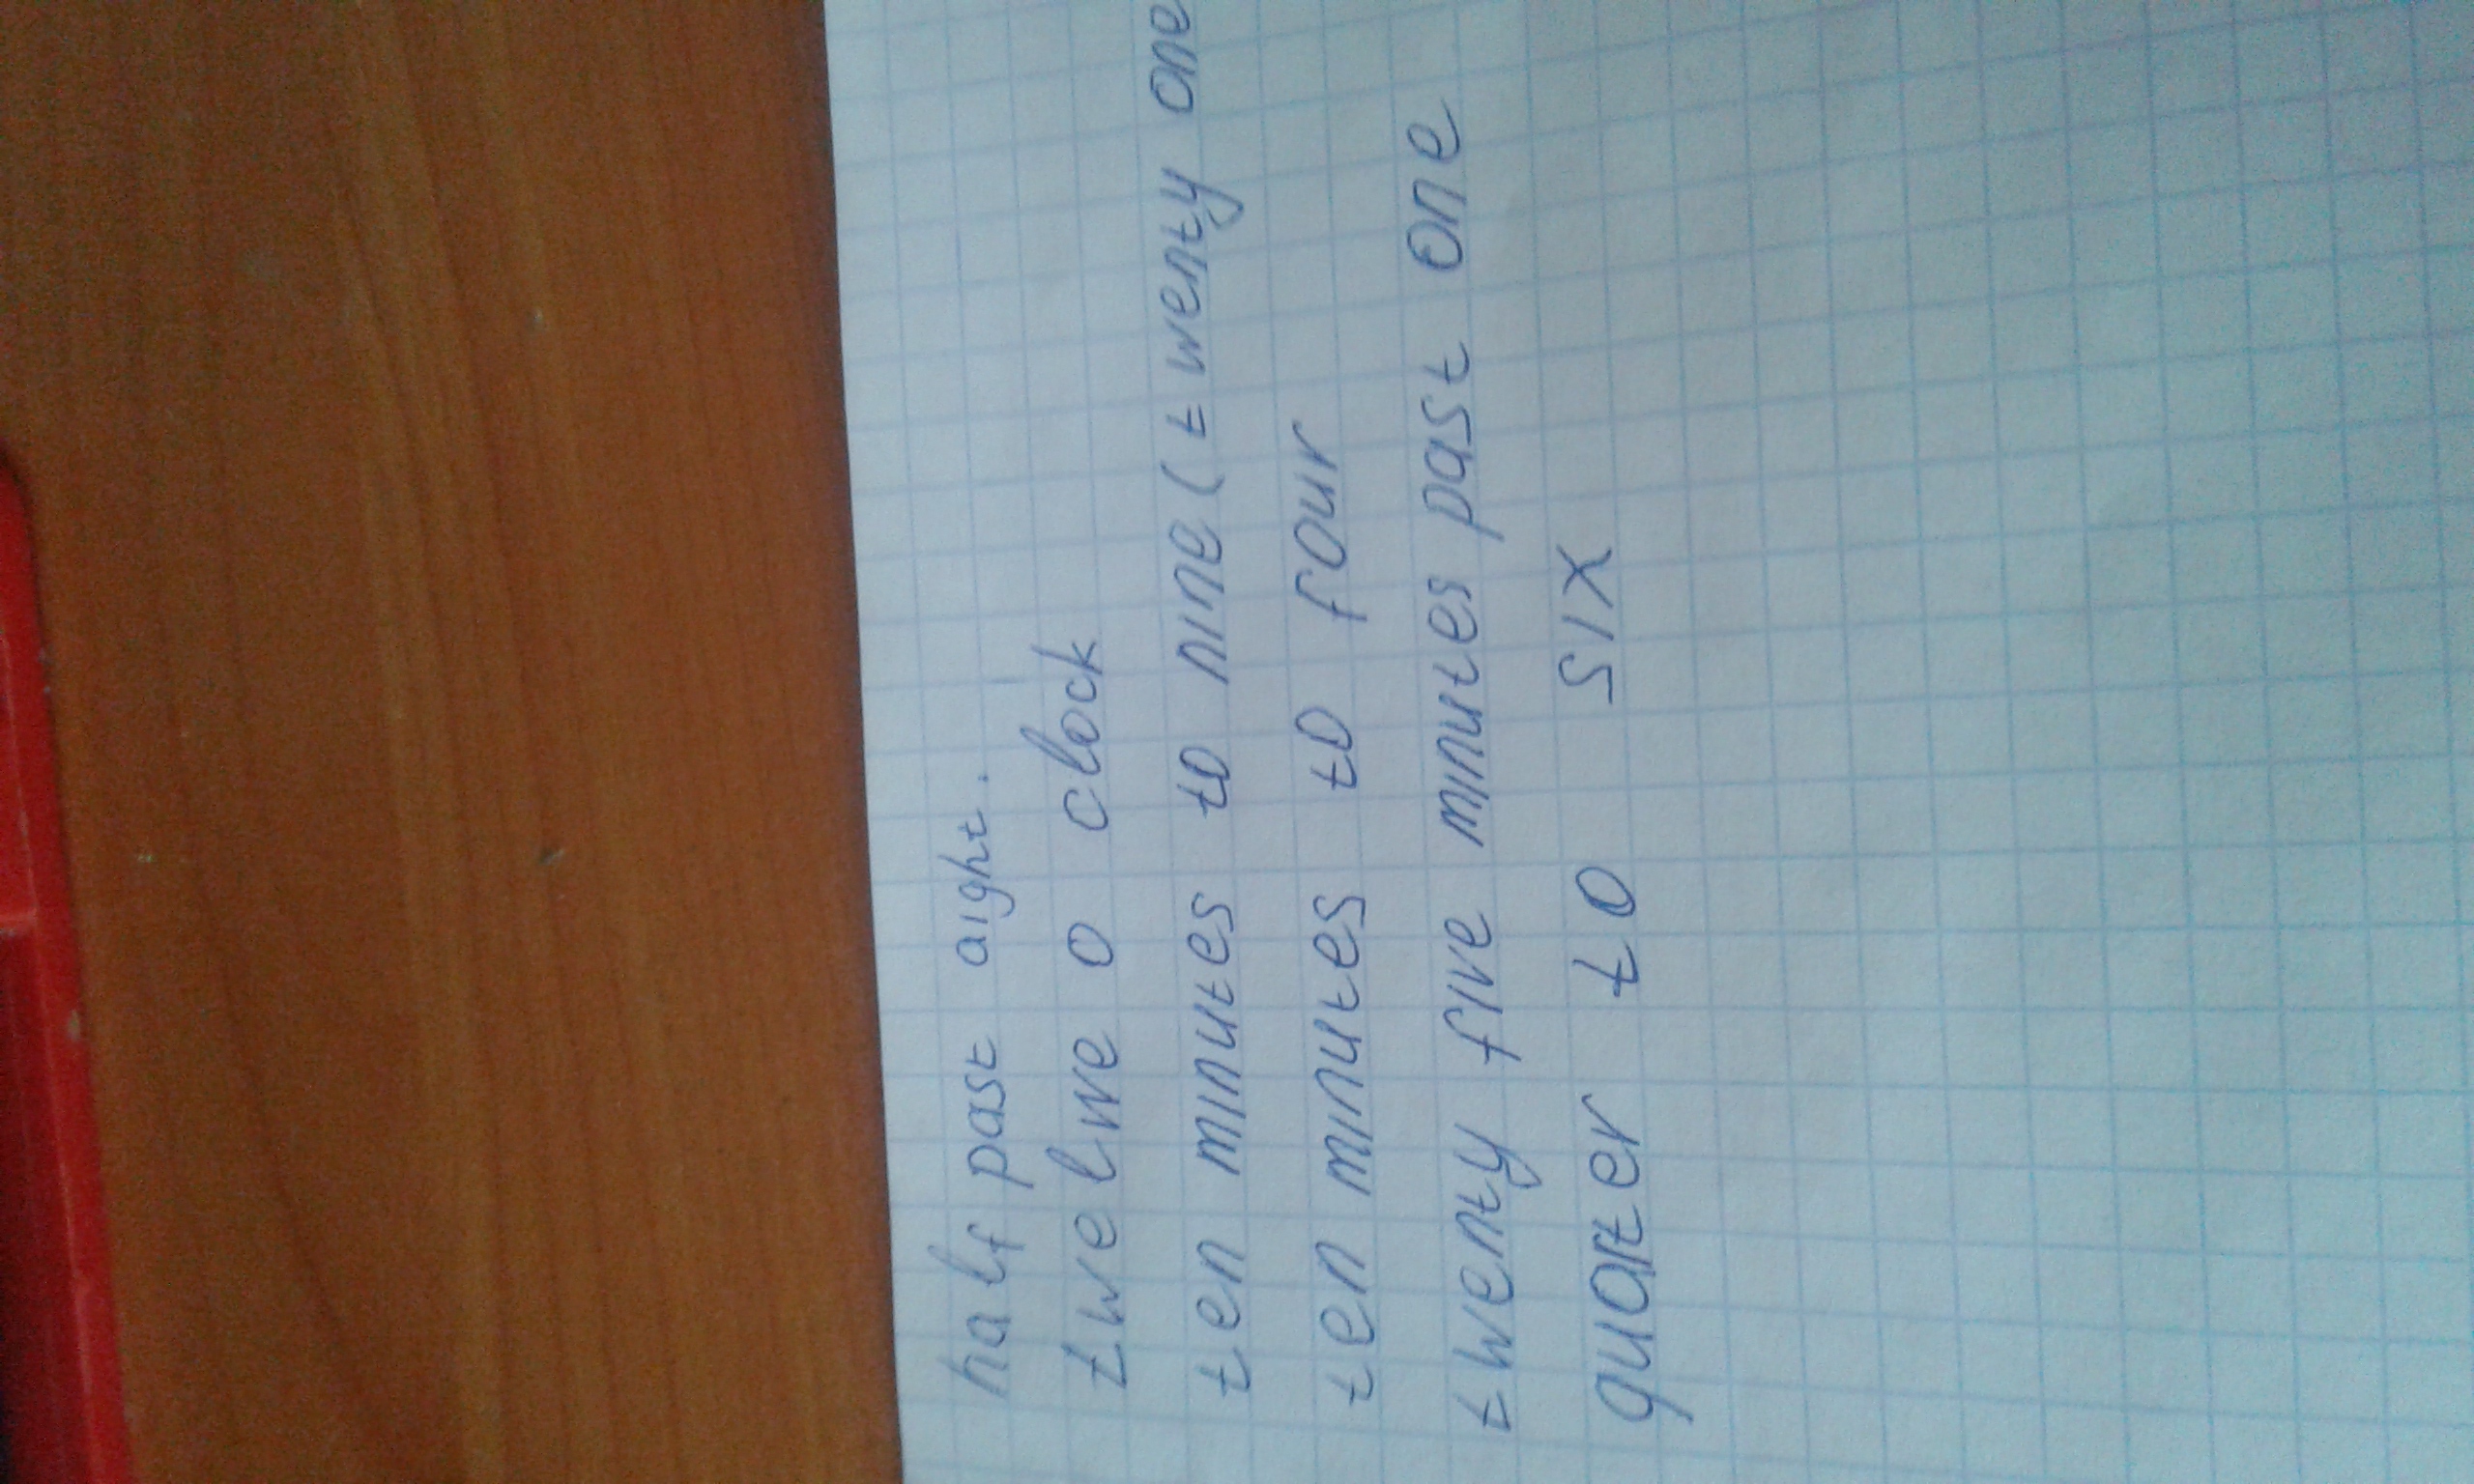 half past aight.
twelwe o clock
ten minutes to nine (twenty one
ten minutes to four
twenty five minutes past one
quarter to six